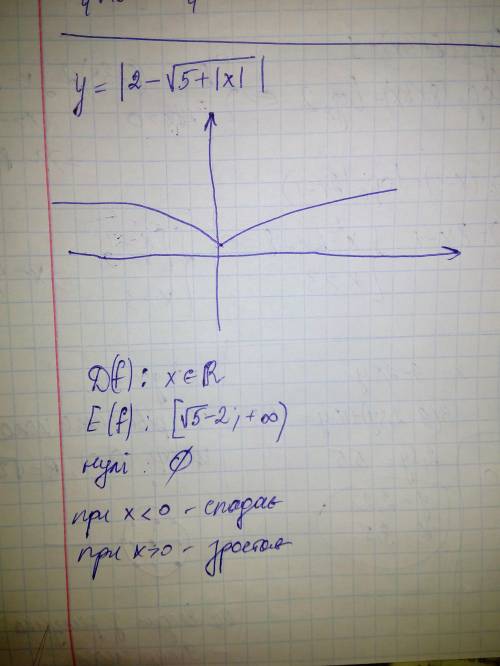 y = |2 - √5 + |x| |
D(f) : x ∈ R
E(f) : [√5 - 2 ; +∞)
нулі : ∅
при x < 0 - спадає
при x > 0 - зростає